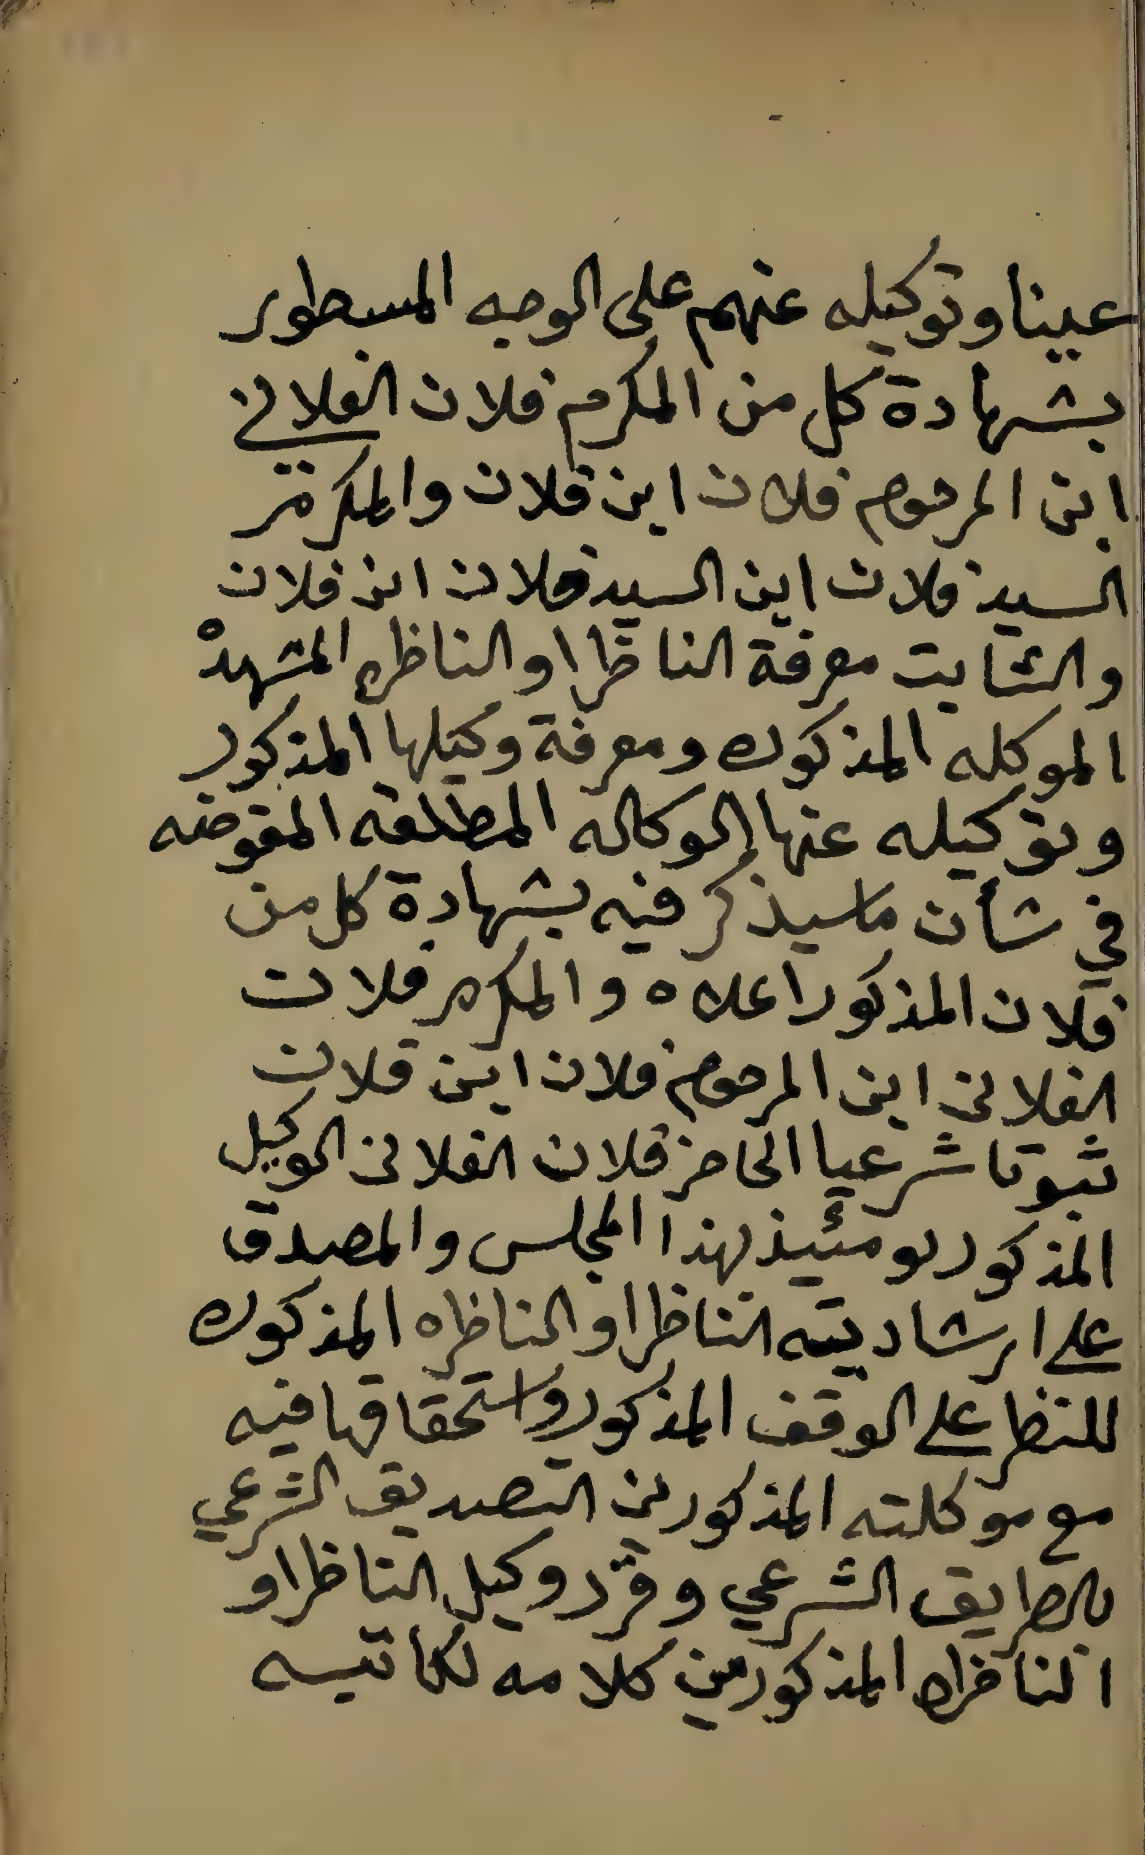 عينا وتوكيله عنهم على الوجه المسطور
بشهادة كل من المكرم فلان الفلاني
ابن المرحوم فلان ابن فلان والمكرم
السيد فلان ابن السيد فلان ابن فلان
والثابت معرفة الناظر او الناظره المشهده
الموكله المذكوره ومعرفة وكيلها المذكور
وتوكيله عنها الوكاله المطلقه المفوضه
في شأن ما سيذكر فيه بشهادة كل من
فلان المذكور اعلاه والمكرم فلان
الفلانى ابن المرحوم فلان ابن فلان
ثبوتا شرعيا الحاضر فلان الفلانى الوكيل
المذكور يومئيذ بهذا المجلس والمصدق
على ارشادية الناظر او الناظره المذكوره
للنظر على الوقف المذكور واستحقاقها فيه
مع موكلته المذكورين التصديق الشرعي
بالطريق الشرعي وقرر وكيل الناظر او
الناظره المذكورين كلامه لكاتبه